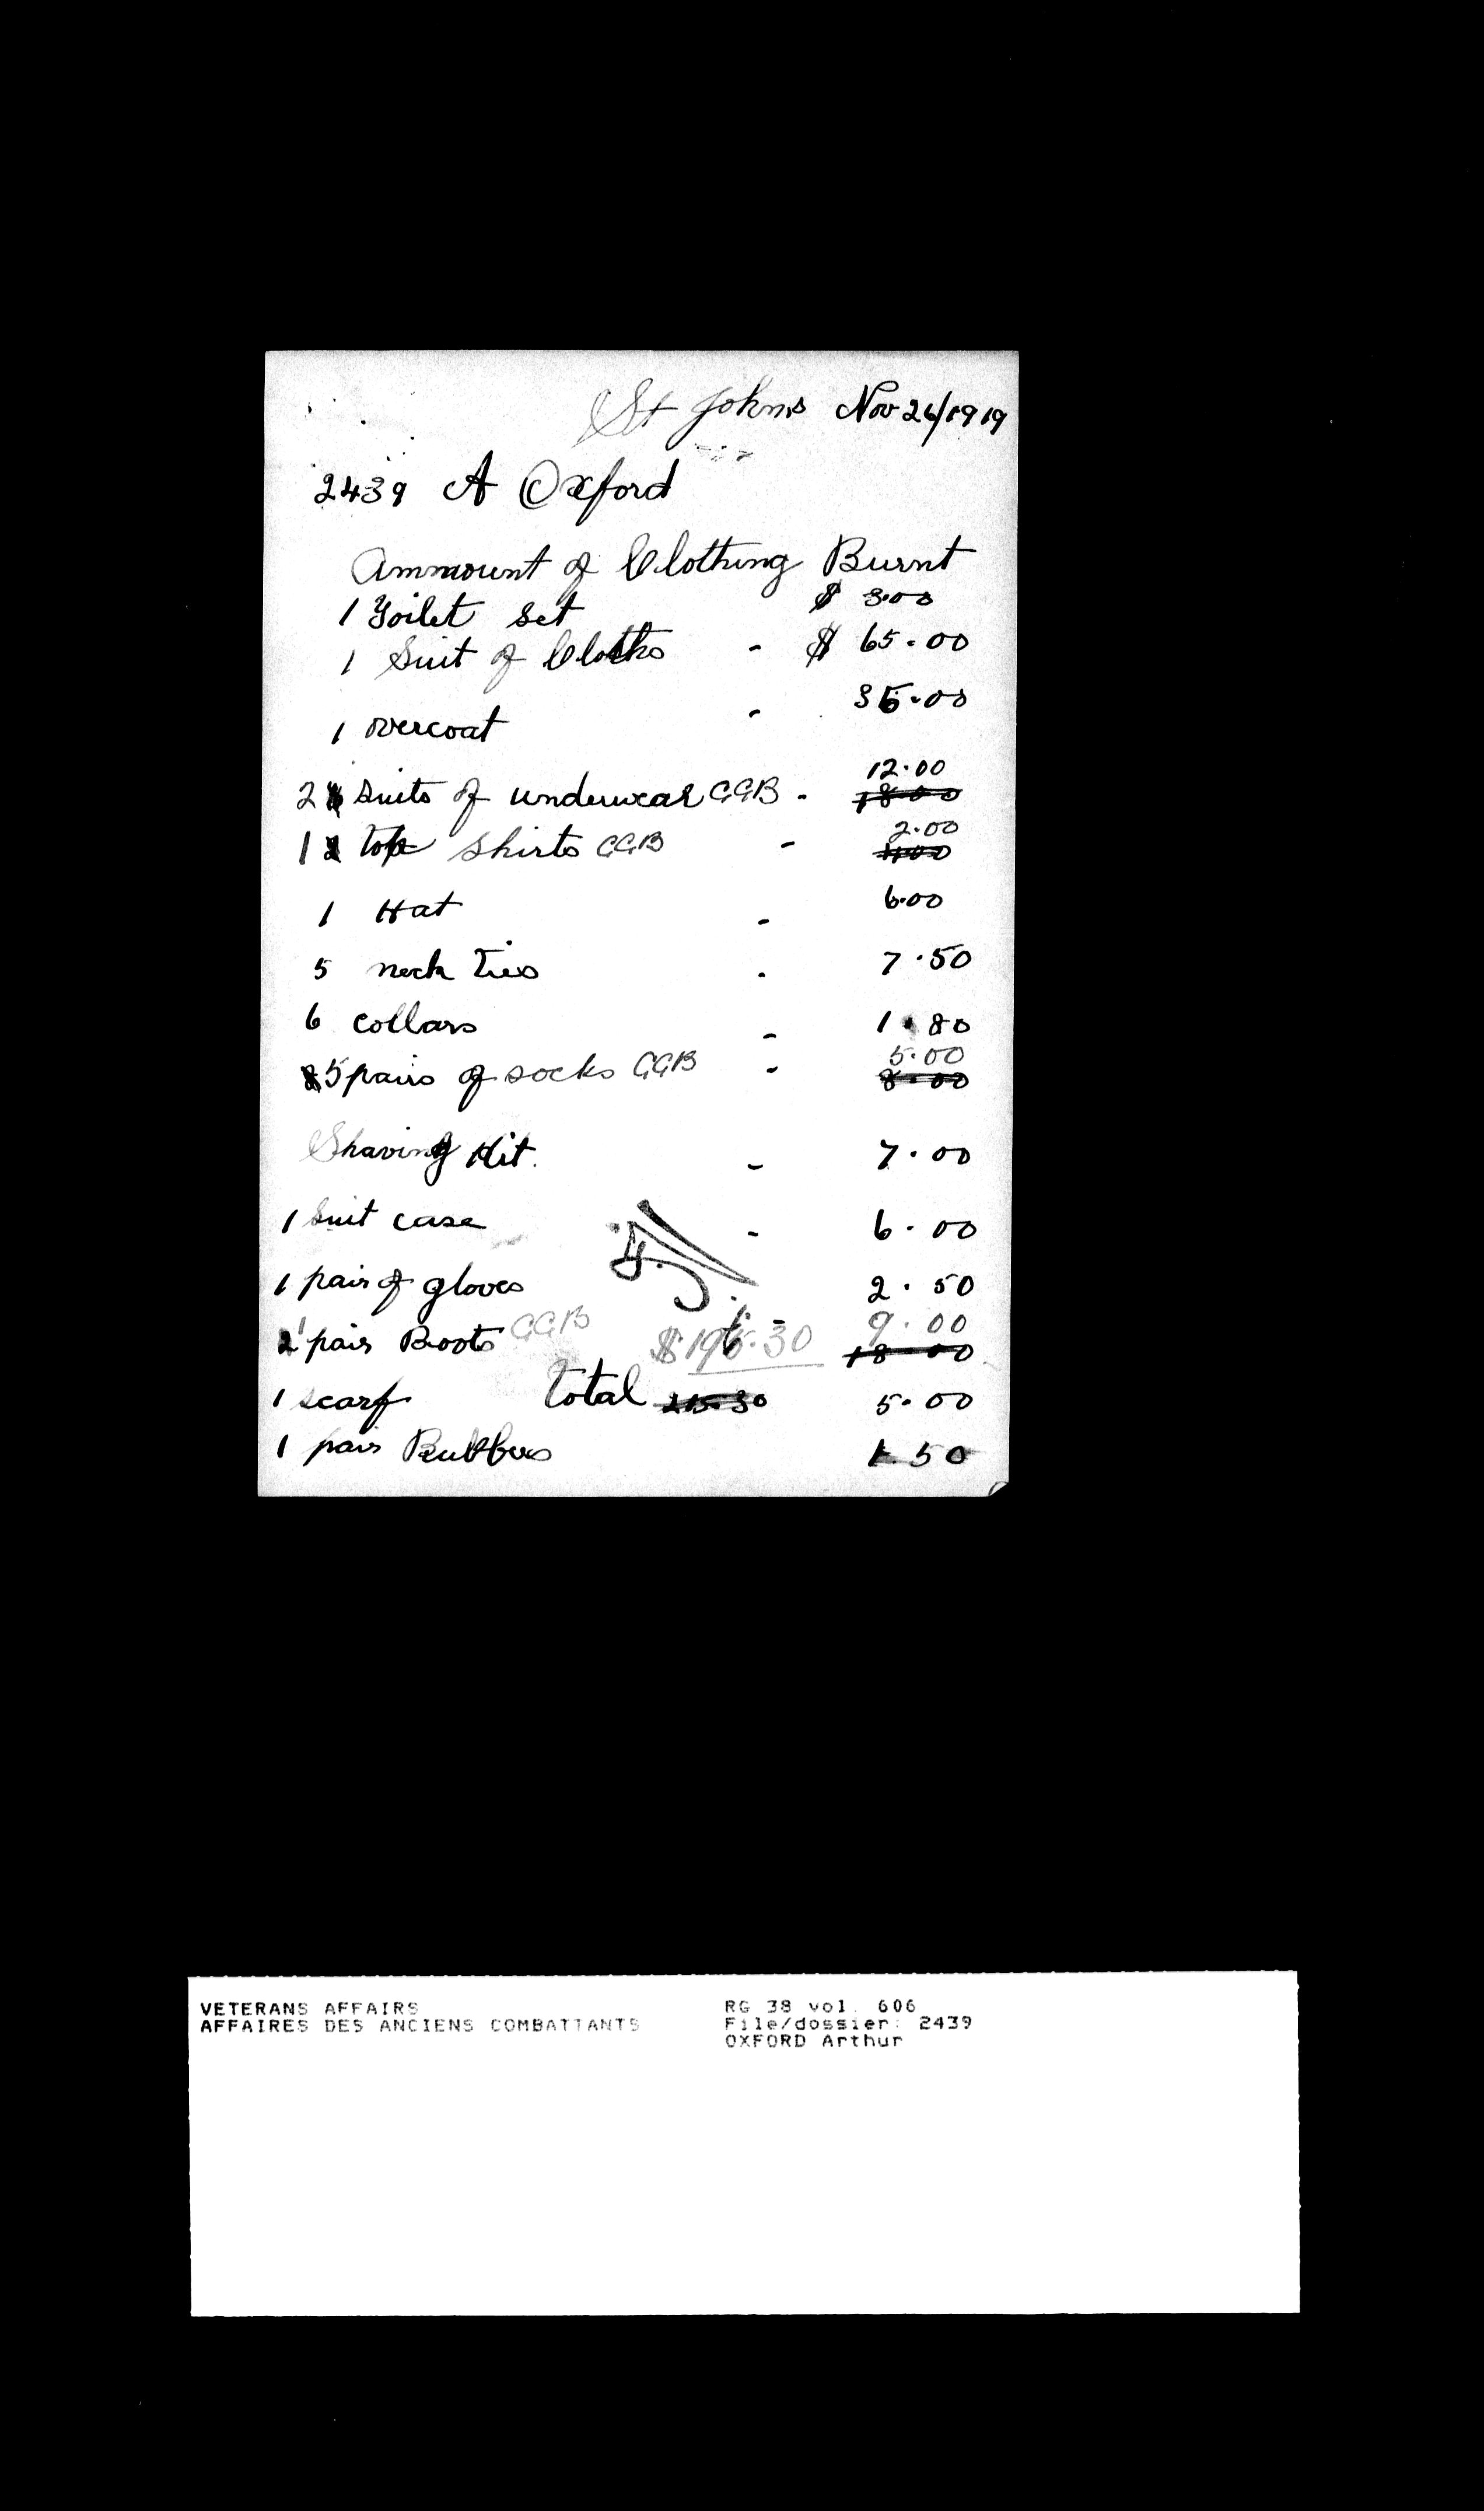 St Johns Nov 26/1919
2439 A Oxford
Ammount of Clothing Burnt
1 Toilet Set $ 3.00
1 Suit of Cloths - $ 65.00
1 overcoat - 35.00
2 suits of underwear GGB - 12.00
18 00
1 2 top shirts GGB - 2.00
4 00
1 Hat - 6.00
5 neck Ties - 7.50
6 collars - 1.80
8 5 pairs of socks GGB - 5.00
8.00
Shaving Kit - 7.00
1 suit case - 6.00
1 pair of gloves 2.50
2 1 pair Boots GGB 9.00
18 00
$ 196.30
1 scarf Total 215.30 5.00
1 pair Rubbers 1 50
VETERANS AFFAIRS
AFFAIRES DES ANCIENS COMBATTANTS
RG 38 vol. 606
File/dossier: 2439
OXFORD Arthur